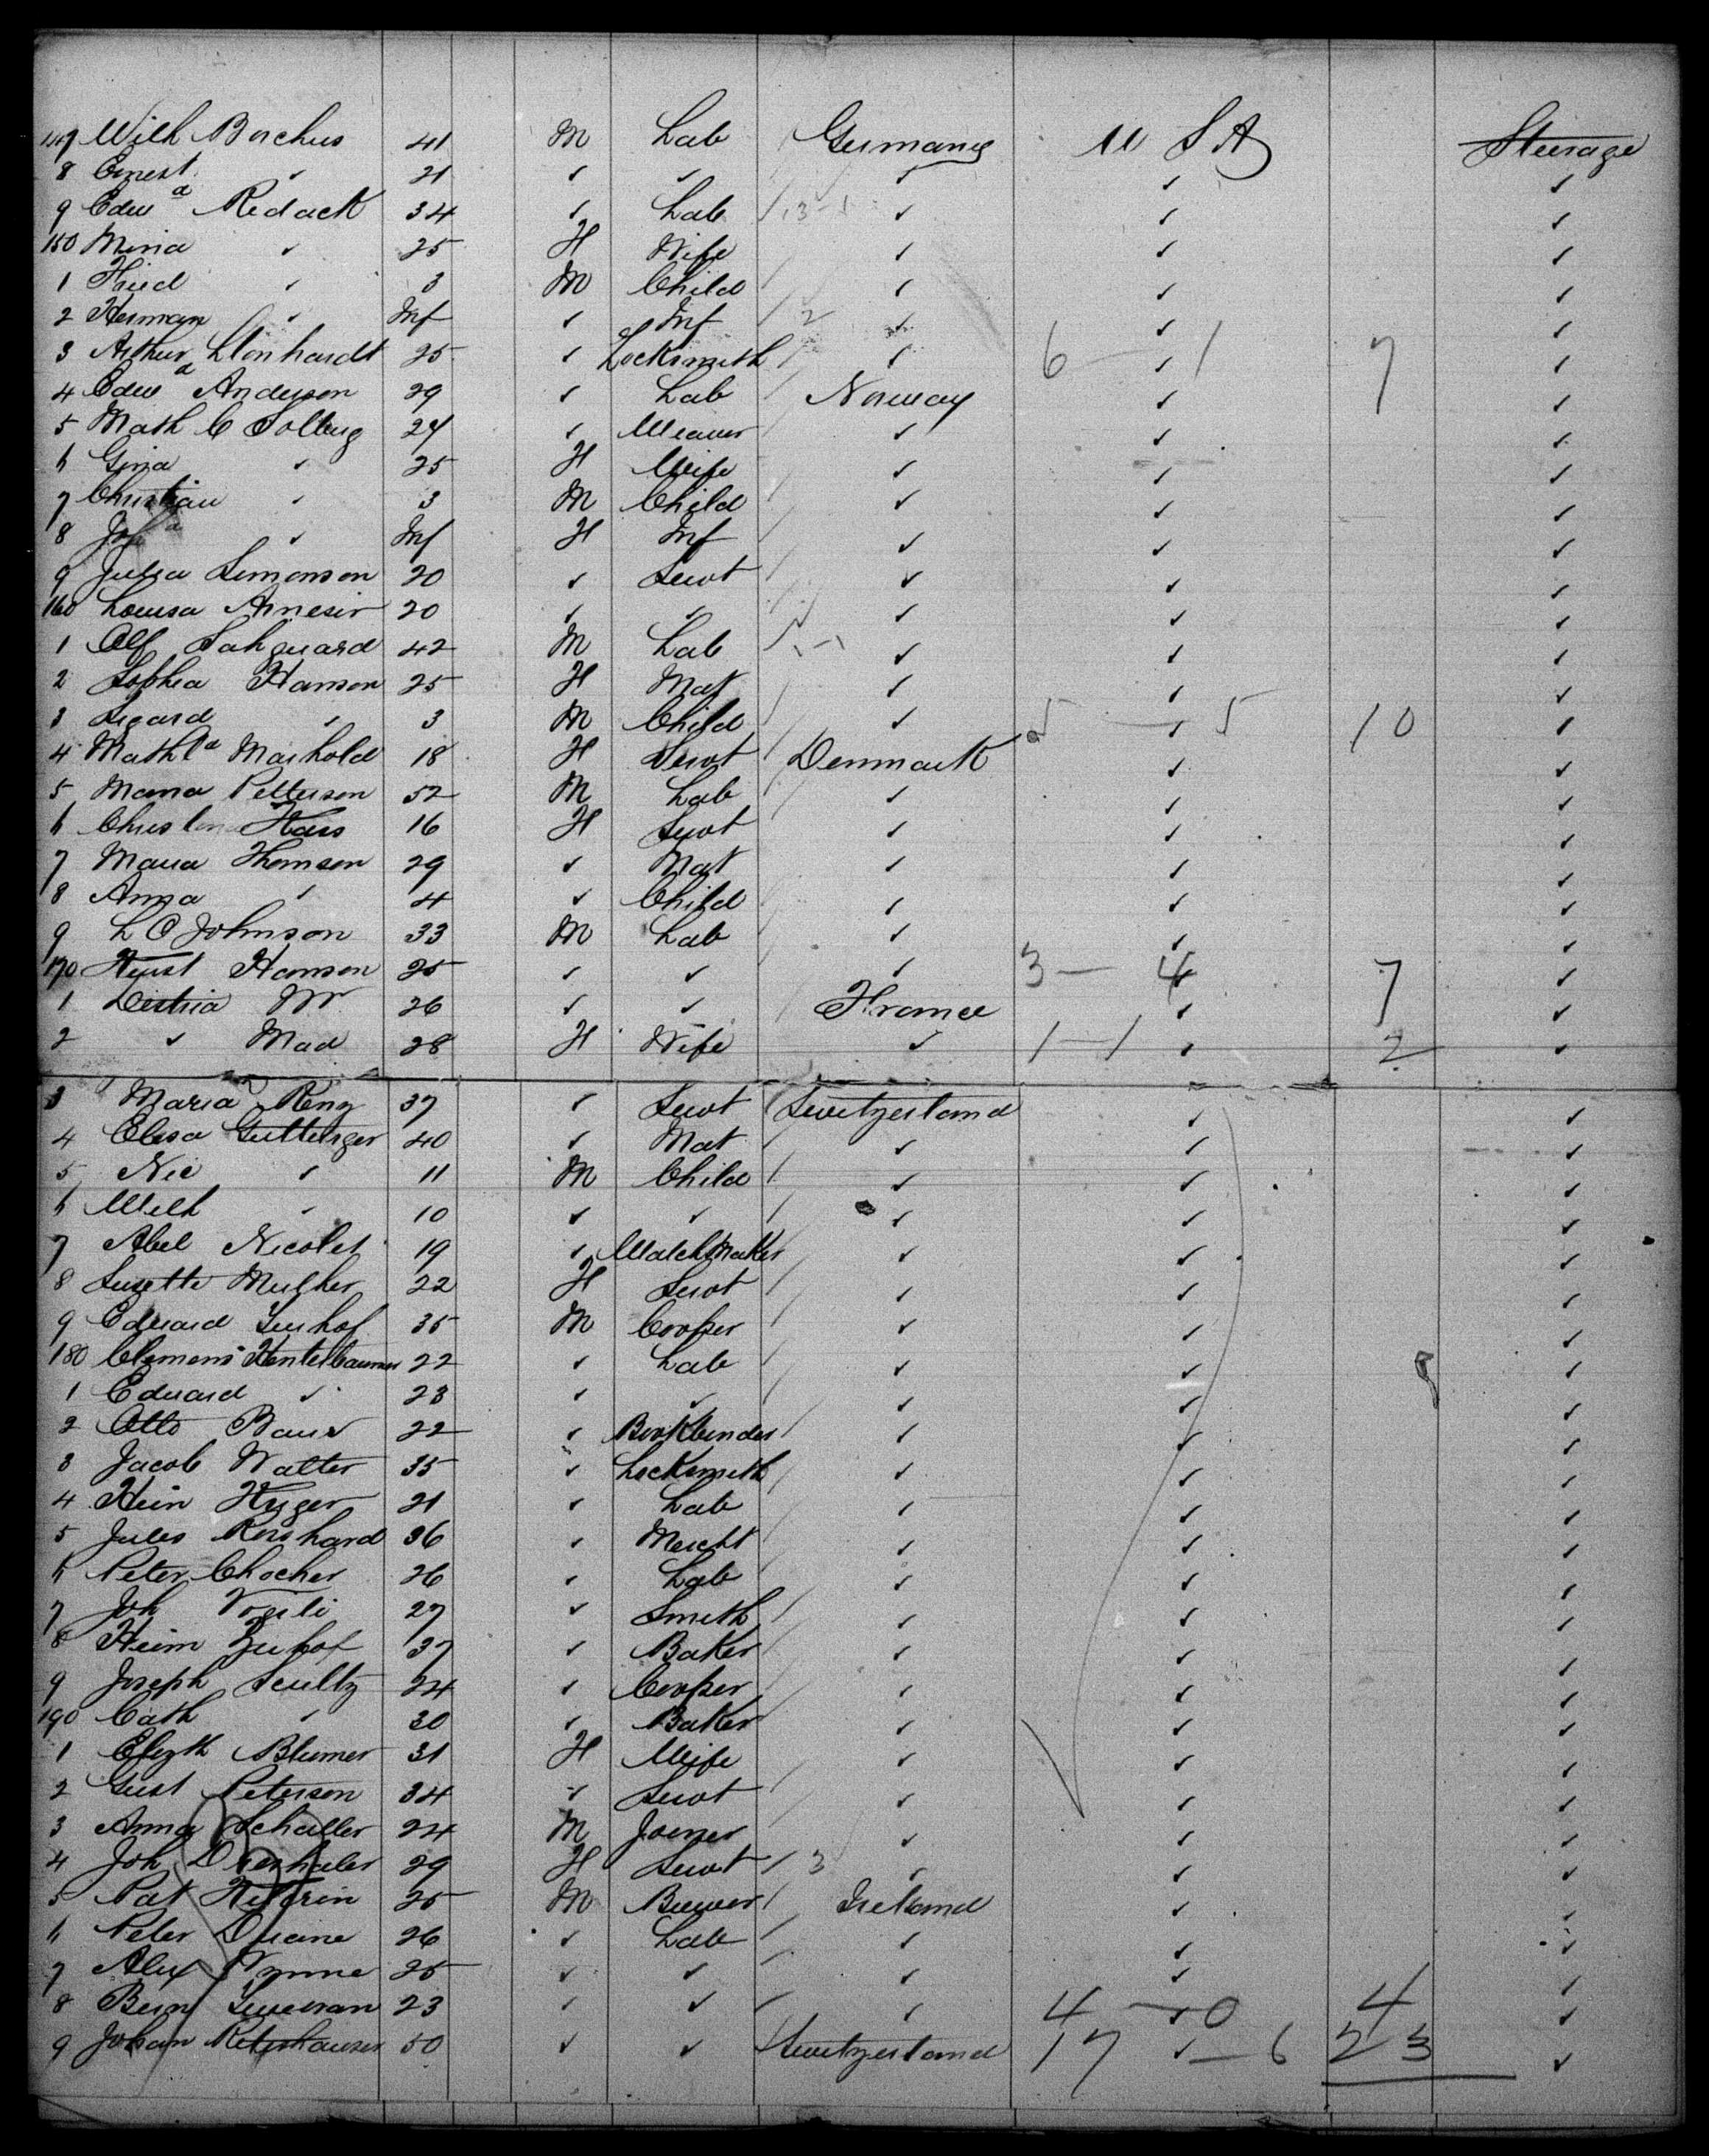 147 Wilh Borchus 41 M Lab Germany U S A Steerage
8 Ernest ✓ 21 ✓ ✓ ✓ ✓ ✓
9 Edwd Redack 34 ✓ Lab ✓ ✓ ✓
150 Mina ✓ 25 F Wife ✓ ✓ ✓
1 Fried ✓ 3 M Child ✓ ✓ ✓
2 Herman ✓ Inf ✓ Inf ✓ ✓ ✓
3 Arthur Lionhardt 25 ✓ Locksmith ✓ 6 — 1 7 ✓
4 Edwd Anderson 29 ✓ Lab Norway ✓ ✓
5 Math C Solberg 24 ✓ Weaver ✓ ✓ ✓
6 Gina ✓ 25 F Wife ✓ ✓ ✓
7 Christian ✓ 3 M Child ✓ ✓ ✓
8 ✓ Inf F Inf ✓ ✓ ✓
9 Julia Simonson 20 ✓ Servt ✓ ✓ ✓
160 Louisa Arnesir 20 ✓ ✓ ✓ ✓ ✓
1 Olf Sahguard 42 M Lab ✓ ✓ ✓
2 Sophia Hanson 25 F Mat ✓ ✓ ✓
3 Sigard ✓ 3 M Child ✓ 5 — 5 10 ✓
4 Mathla Marhold 18 F Servt Denmark ✓ ✓
5 Mama Petterson 52 M Lab ✓ ✓ ✓
6 Christine Hass 16 F Servt ✓ ✓ ✓
7 Maria Thomson 29 ✓ Mat ✓ ✓ ✓
8 Anna ✓ 4 ✓ Child ✓ ✓ ✓
9 L C Johnson 33 M Lab ✓ ✓ ✓
170 Hanson 25 ✓ ✓ ✓ 3 — 4 7 ✓
1 Destria Mr 26 ✓ ✓ France ✓ ✓
2 ✓ Mad 28 F Wife ✓ 1 — 1 2 ✓
3 Maria Renz 37 ✓ Servt Switzerland ✓ ✓
4 Elisa Guttinger 40 ✓ Mat ✓ ✓ ✓
5 Nic ✓ 11 M Child ✓ ✓ ✓
6 Wilh ✓ 10 ✓ ✓ ✓ ✓ ✓
7 Abel Nicolet 19 ✓ WatchMaker ✓ ✓ ✓
8 Susette Mulher 22 F Servt ✓ ✓ ✓
9 Eduard Imhof 35 M Cooper ✓ ✓ ✓
180 Clemens Kentelbaumer 22 ✓ Lab ✓ ✓ ✓
1 Eduard ✓ 23 ✓ ✓ ✓ ✓ ✓
2 Otto Baur 22 ✓ Bookbinder ✓ ✓ ✓
3 Jacob Walter 35 ✓ Locksmith ✓ ✓ ✓
4 Hein Hyger 21 ✓ Lab ✓ ✓ ✓
5 Jules Reishard 36 ✓ Mercht ✓ ✓ ✓
6 Peter Chocher 26 ✓ Lab ✓ ✓ ✓
7 Joh Vogeli 27 ✓ Smith ✓ ✓ ✓
8 Heim Zuhof 37 ✓ Baker ✓ ✓ ✓
9 Joseph Scultz 24 ✓ Cooper ✓ ✓ ✓
190 Cath ✓ 30 ✓ Baker ✓ ✓ ✓
1 Elizth Blumer 31 F Wife ✓ ✓ ✓
2 Gust Peterson 34 ✓ Servt ✓ ✓ ✓
3 Anna Schaller 24 M Joiner ✓ ✓ ✓
4 Joh 29 F Servt 3 ✓ ✓ ✓
5 Pat Kilgrin 25 M Brewer Ireland ✓ ✓
6 Peter Duane 26 ✓ Lab ✓ ✓ ✓
7 Alex Wynne 25 ✓ ✓ ✓ ✓ ✓
8 Bern Sweeran 23 ✓ ✓ ✓ 4 — 0 4 ✓
9 Johan Retershauser 50 ✓ ✓ Switzerland 17 ✓ — 6 23 ✓